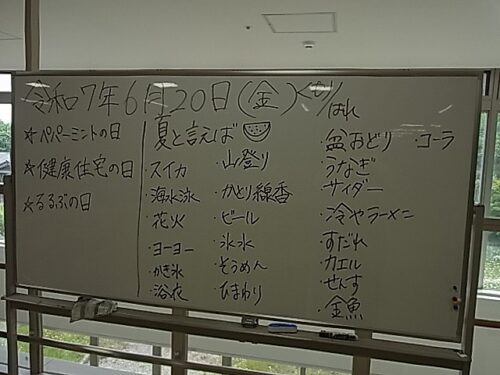 令和7年6月20日(金)くもり/はれ
☆ペパーミントの日
☆健康住宅の日
☆るるぶの日
夏と言えば
・スイカ
・海水泳
・花火
・ヨーヨー
・かき氷
・浴衣
・山登り
・かとり線香
・ビール
・氷水
・そうめん
・ひまわり
・盆おどり
・うなぎ
・サイダー
・冷やラーメン
・すだれ
・カエル
・せんす
・金魚
・コーラ